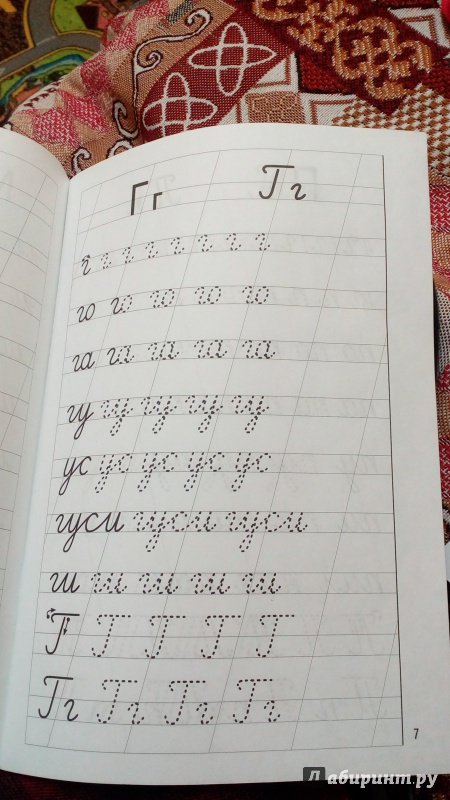 Гг Гг
г г г г г г г г
го го го го го
га га га га га
гу гу гу гу гу
ус ус ус ус ус
гуси гуси гуси
ги ги ги ги ги
Г Г Г Г Г
Гг Гг Гг Гг
7
Лабиринт.ру